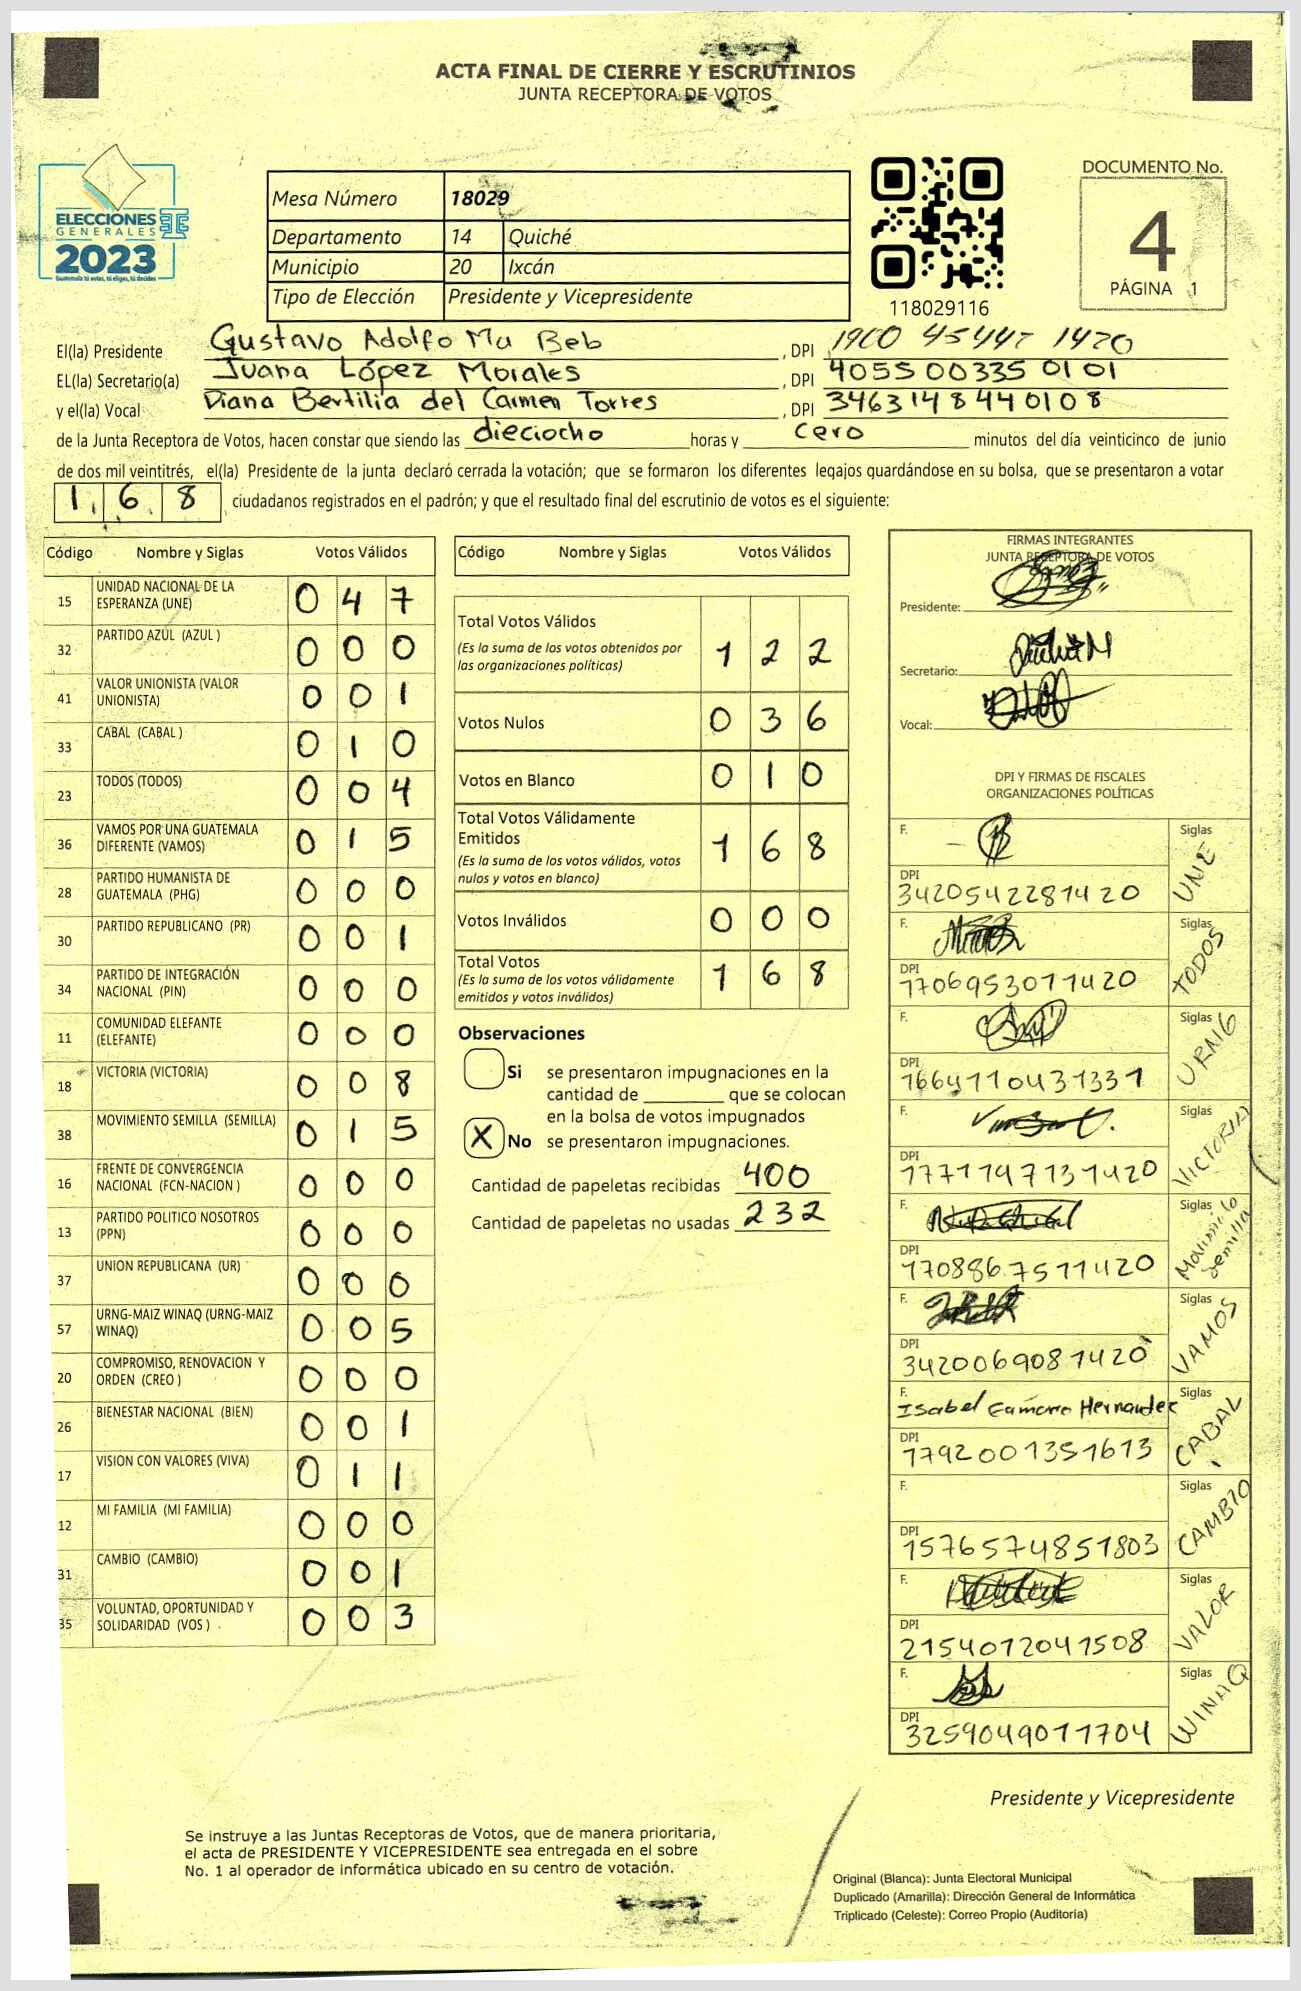 ACTA FINAL DE CIERRE Y ESCRUTINIOS
JUNTA RECEPTORA DE VOTOS
ELECCIONES
GENERALES
2023
Guatemala tú votas, tú eliges, tú decides
Mesa Número 18029
Departamento 14 Quiché
Municipio 20 Ixcán
Tipo de Elección Presidente y Vicepresidente
118029116
DOCUMENTO No.
4
PÁGINA 1
El(la) Presidente Gustavo Adolfo Mu Beb , DPI 1960 45447 1420
EL(la) Secretario(a) Juana López Morales , DPI 4055 00335 0101
y el(la) Vocal Diana Bertilia del Carmen Torres , DPI 3463148440108
de la Junta Receptora de Votos, hacen constar que siendo las dieciocho horas y cero minutos del día veinticinco de junio
de dos mil veintitrés, el(la) Presidente de la junta declaró cerrada la votación; que se formaron los diferentes legajos guardándose en su bolsa, que se presentaron a votar
1 6 8 ciudadanos registrados en el padrón; y que el resultado final del escrutinio de votos es el siguiente:
Código Nombre y Siglas Votos Válidos
15 UNIDAD NACIONAL DE LA ESPERANZA (UNE) 0 4 7
32 PARTIDO AZUL (AZUL ) 0 0 0
41 VALOR UNIONISTA (VALOR UNIONISTA) 0 0 1
33 CABAL (CABAL ) 0 1 0
23 TODOS (TODOS) 0 0 4
36 VAMOS POR UNA GUATEMALA DIFERENTE (VAMOS) 0 1 5
28 PARTIDO HUMANISTA DE GUATEMALA (PHG) 0 0 0
30 PARTIDO REPUBLICANO (PR) 0 0 1
34 PARTIDO DE INTEGRACIÓN NACIONAL (PIN) 0 0 0
11 COMUNIDAD ELEFANTE (ELEFANTE) 0 0 0
18 VICTORIA (VICTORIA) 0 0 8
38 MOVIMIENTO SEMILLA (SEMILLA) 0 1 5
16 FRENTE DE CONVERGENCIA NACIONAL (FCN-NACION ) 0 0 0
13 PARTIDO POLITICO NOSOTROS (PPN) 0 0 0
37 UNION REPUBLICANA (UR) 0 0 0
57 URNG-MAIZ WINAQ (URNG-MAIZ WINAQ) 0 0 5
20 COMPROMISO, RENOVACION Y ORDEN (CREO ) 0 0 0
26 BIENESTAR NACIONAL (BIEN) 0 0 1
17 VISION CON VALORES (VIVA) 0 1 1
12 MI FAMILIA (MI FAMILIA) 0 0 0
31 CAMBIO (CAMBIO) 0 0 1
35 VOLUNTAD, OPORTUNIDAD Y SOLIDARIDAD (VOS ) 0 0 3
Código Nombre y Siglas Votos Válidos
Total Votos Válidos
(Es la suma de los votos obtenidos por
las organizaciones políticas) 1 2 2
Votos Nulos 0 3 6
Votos en Blanco 0 1 0
Total Votos Válidamente
Emitidos
(Es la suma de los votos válidos, votos
nulos y votos en blanco) 1 6 8
Votos Inválidos 0 0 0
Total Votos
(Es la suma de los votos válidamente
emitidos y votos inválidos) 1 6 8
Observaciones
Si se presentaron impugnaciones en la
cantidad de ________ que se colocan
en la bolsa de votos impugnados
X No se presentaron impugnaciones.
Cantidad de papeletas recibidas 400
Cantidad de papeletas no usadas 232
FIRMAS INTEGRANTES
JUNTA RECEPTORA DE VOTOS
Presidente:
Secretario:
Vocal:
DPI Y FIRMAS DE FISCALES
ORGANIZACIONES POLÍTICAS
F. Siglas UNE
DPI 3420542281420
F. Siglas TODOS
DPI 1706953011420
F. Siglas URNG
DPI 1664110431331
F. Siglas VICTORIA
DPI 1771197131420
F. Siglas Movimiento Semilla
DPI 1708867511420
F. Siglas VAMOS
DPI 3420069081420
F. Isabel Zamora Hernandez Siglas CABAL
DPI 1792001351613
F. Siglas CAMBIO
DPI 1576574851803
F. Siglas VALOR
DPI 2154012041508
F. Siglas WINAQ
DPI 3259049011704
Presidente y Vicepresidente
Se instruye a las Juntas Receptoras de Votos, que de manera prioritaria,
el acta de PRESIDENTE Y VICEPRESIDENTE sea entregada en el sobre
No. 1 al operador de informática ubicado en su centro de votación.
Original (Blanca): Junta Electoral Municipal
Duplicado (Amarilla): Dirección General de Informática
Triplicado (Celeste): Correo Propio (Auditoría)